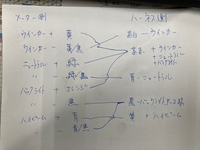 メーター側
ハーネス側
ウインカー + 黄
黄白 ー ウインカー
ウインカー ー 黄/黒
茶赤 + ウインカー
ニュートラル + 緑
+ ニュートラル
〃 ー 緑/黒
青 ー ニュートラル
バックライト + オレンジ
〃 ー 黒
ハイビーム + 青
+ ハイビーム
〃 ー 青/黒